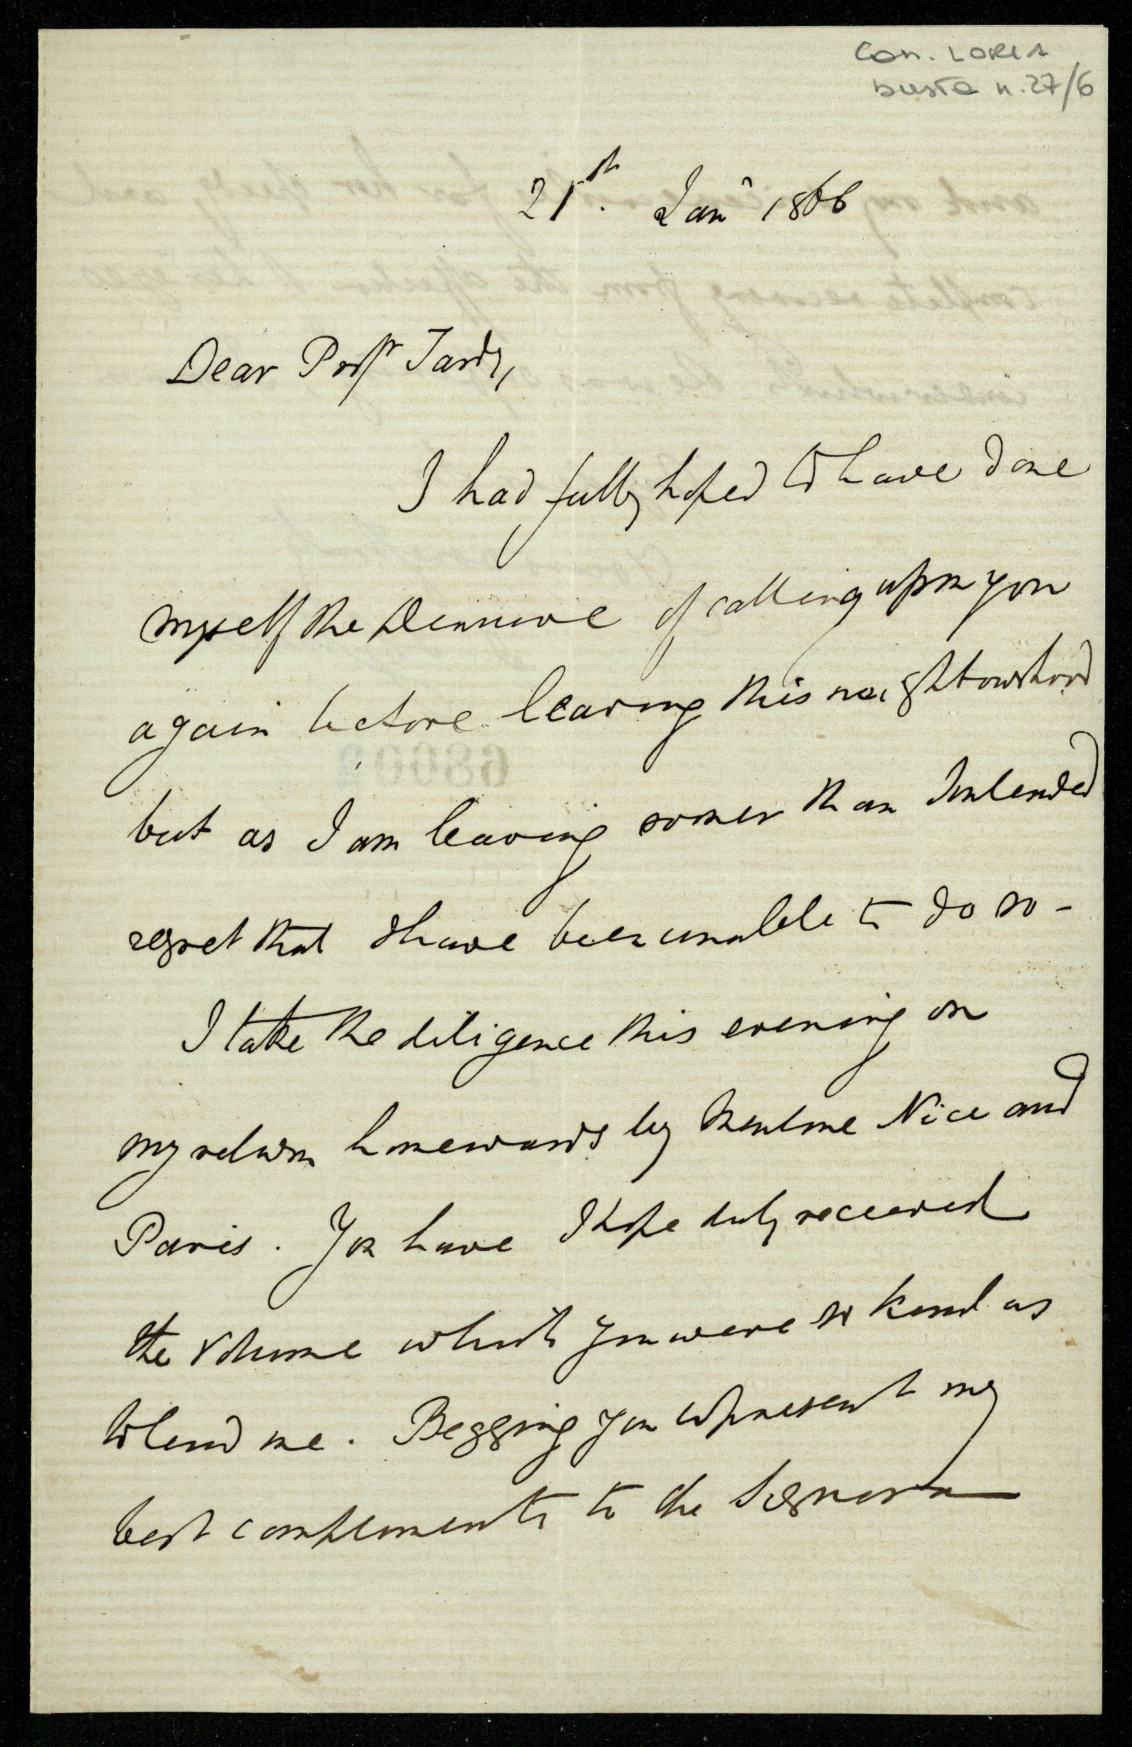 Con. LORIA
busta n. 27/6
21st. Jany 1866
Dear Profr Tardy,
I had fully hoped to have done
myself the pleasure of calling upon you
again before leaving this neighbourhood
but as I am leaving sooner than I intended
regret that I have been unable to do so -
I take the diligence this evening on
my return homewards by Mentone Nice and
Paris. You have I hope duly received
the volume which you were so kind as
to lend me. Begging you to present my
best compliments to the Signora